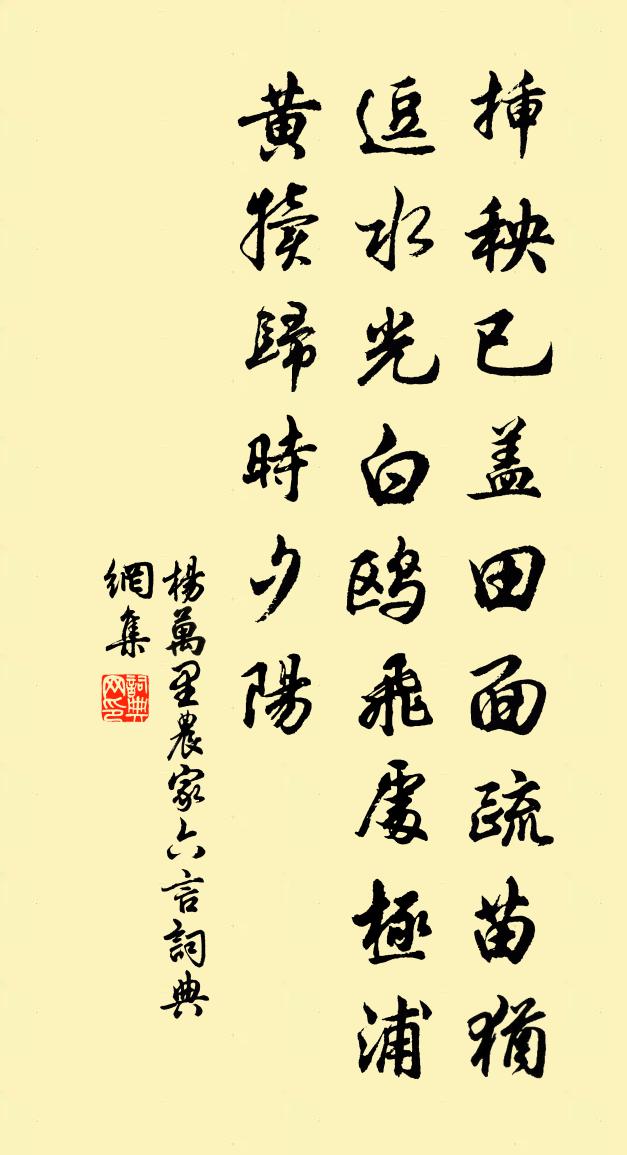 揷秧已盖田面疏苗猶
逗水光白鷗飛處極浦
黃犢歸時夕陽
楊萬里農家六言詞典
網集
詞典網印